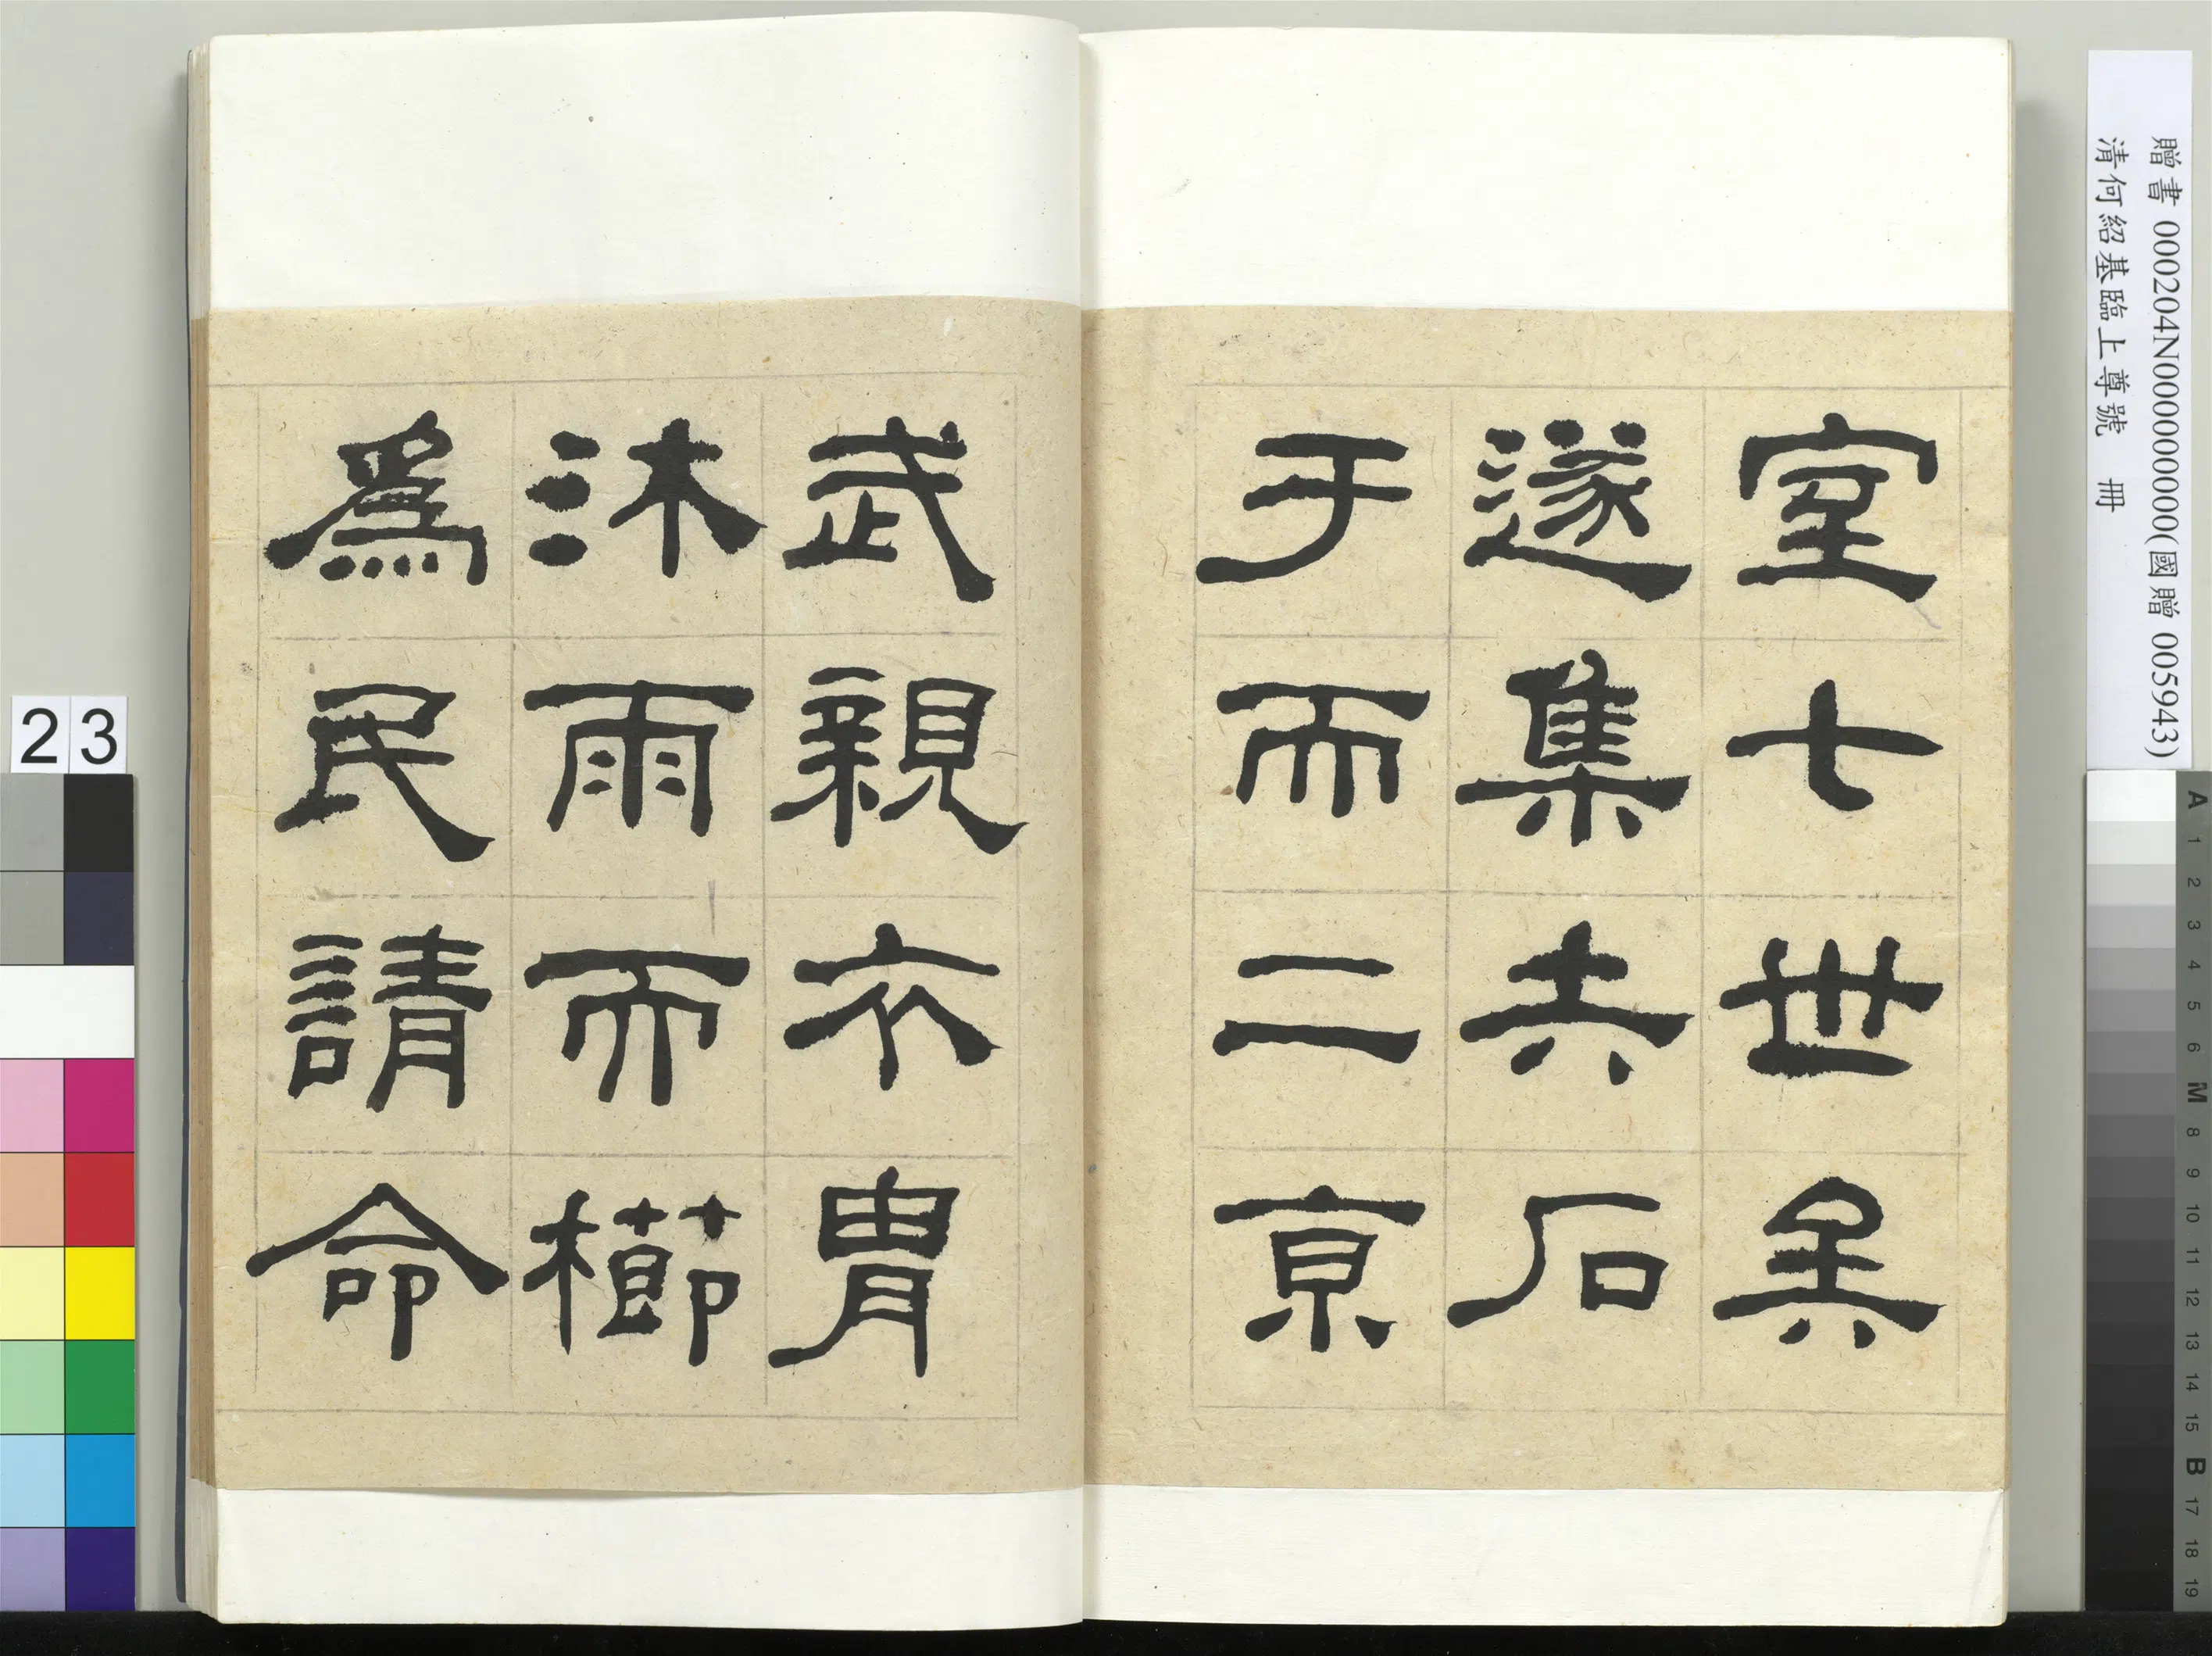 室七世矣
遂集矢石
于而二亰
武親衣冑
沐雨而櫛
爲民請命
贈書 000204N000000000(國贈 005943)
清何紹基臨上尊號 冊
23
A 1 2 3 4 5 6 M 8 9 10 11 12 13 14 15 B 17 18 19